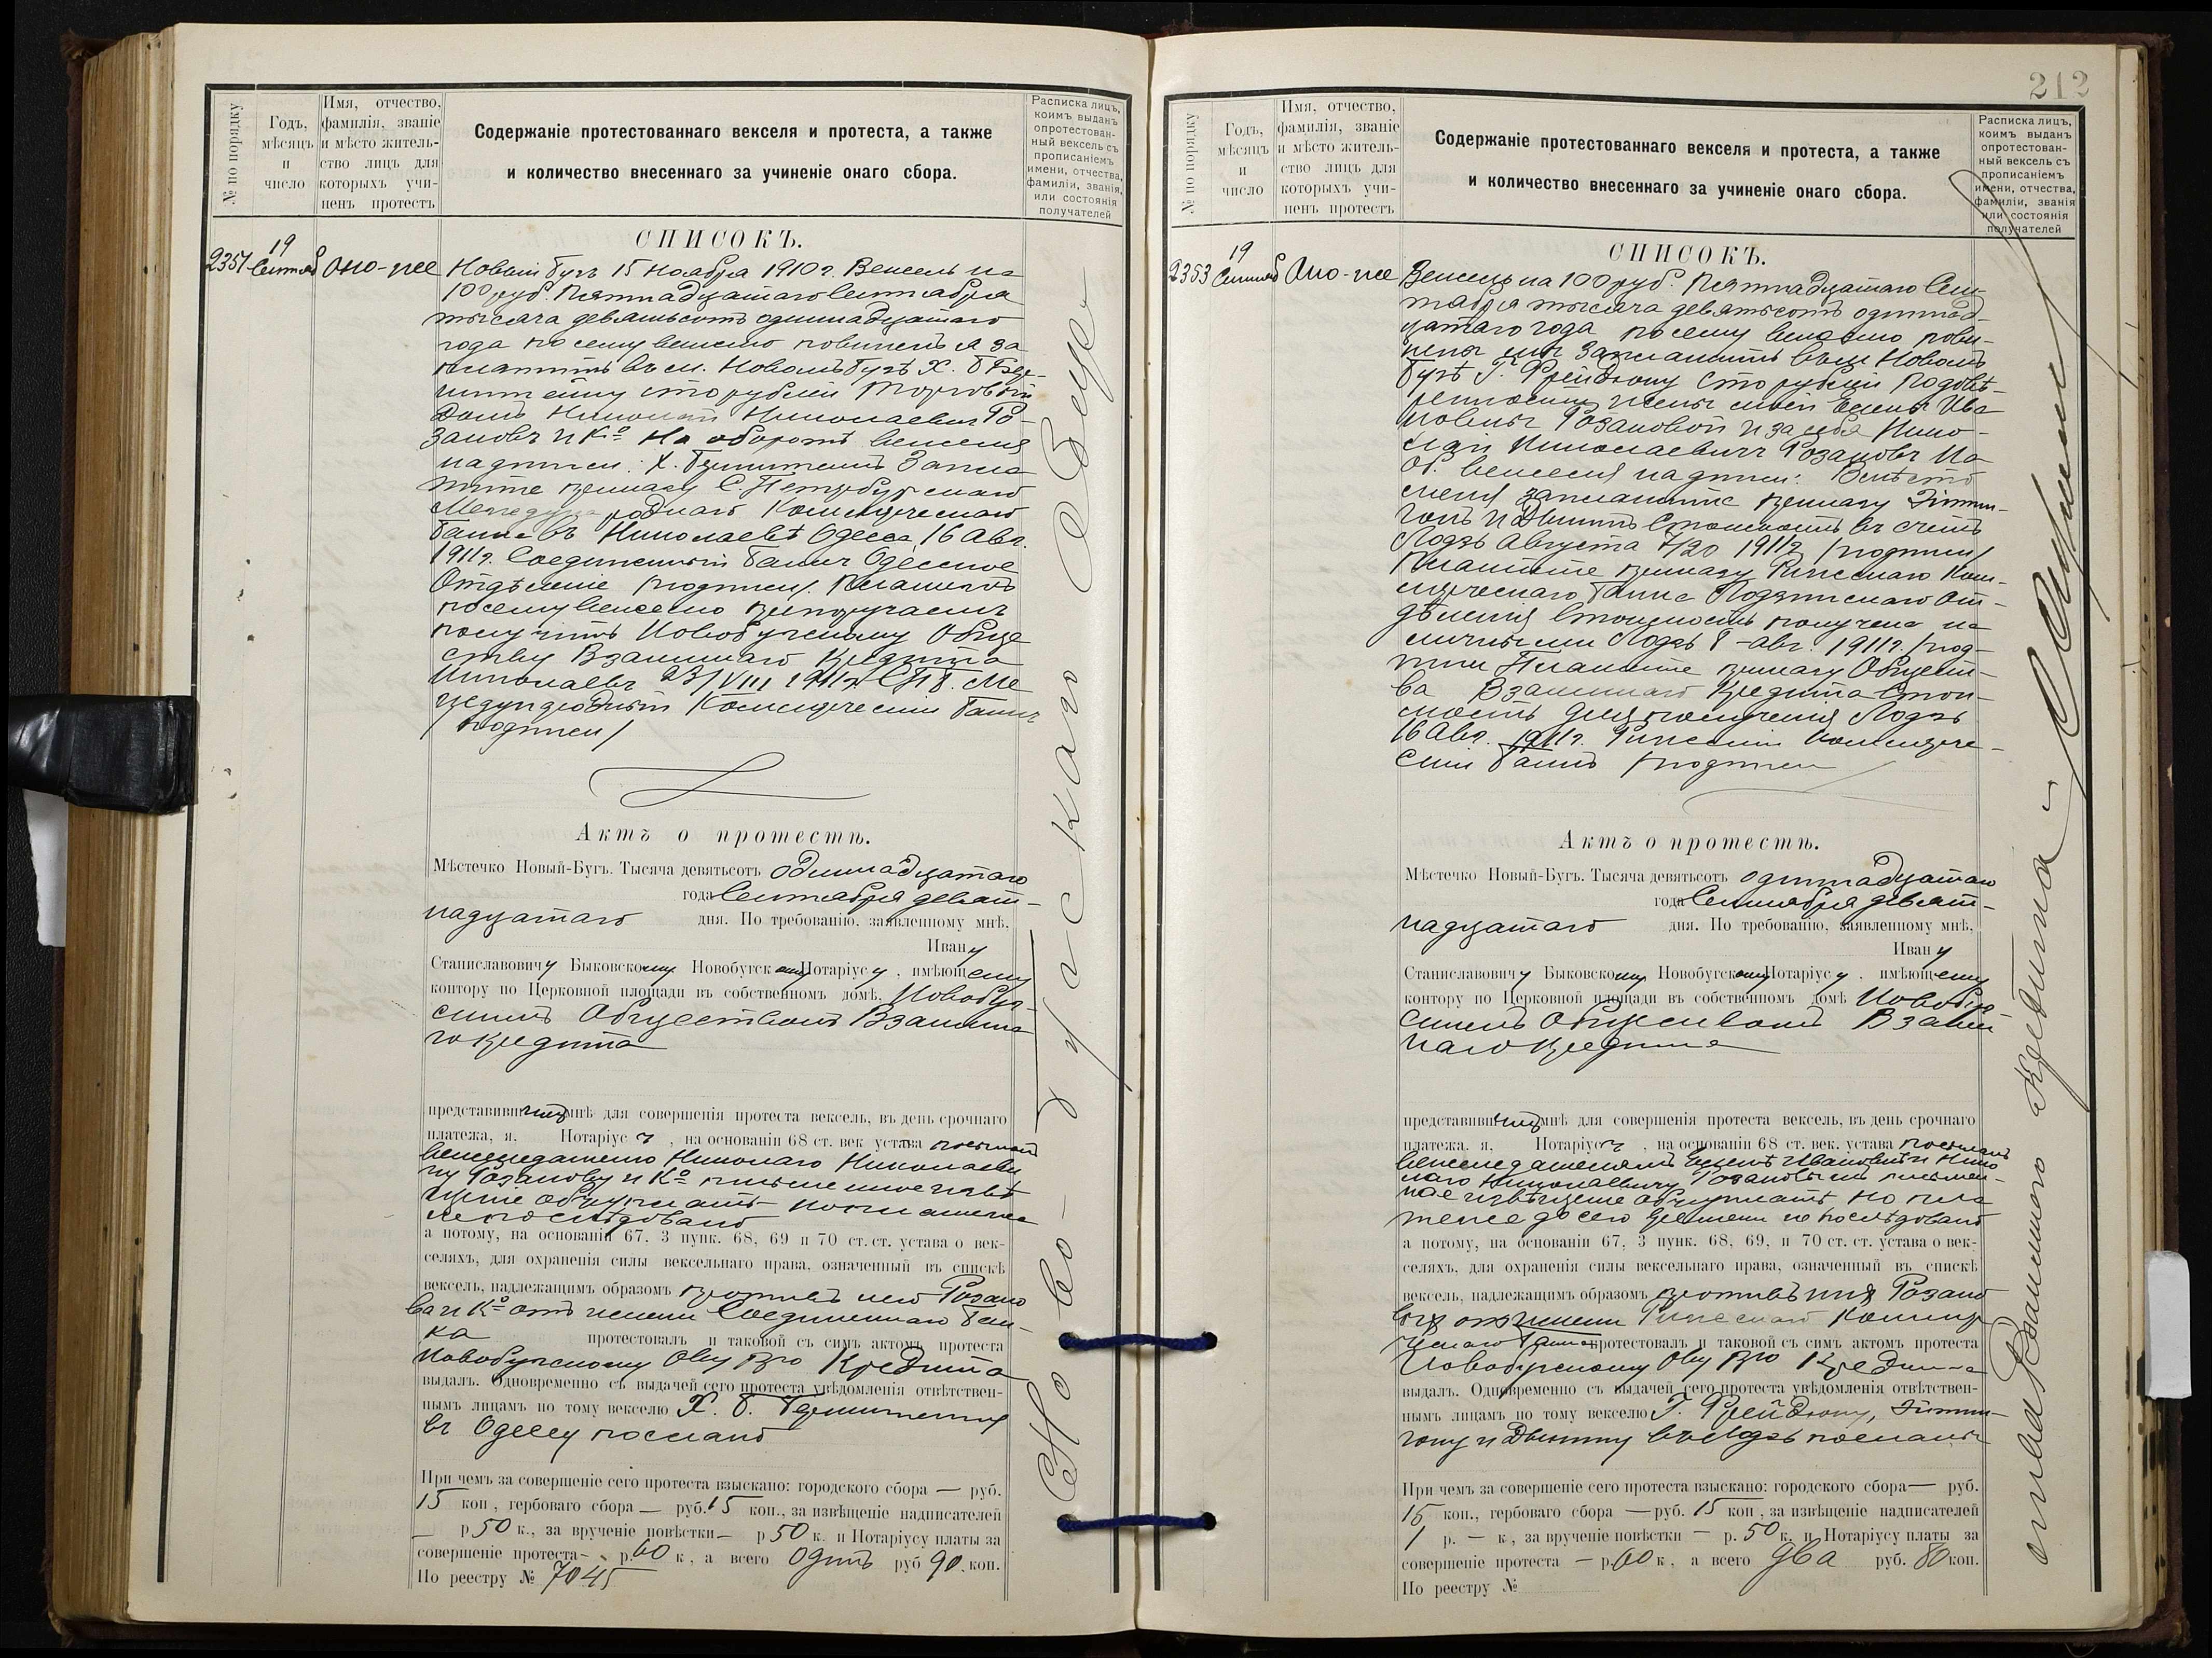 № по порядку
Годъ, мѣсяцъ и число
Имя, отчество, фамилія, званіе и мѣсто жительство лицъ для которыхъ учиненъ протестъ
Содержаніе протестованнаго векселя и протеста, а также
и количество внесеннаго за учиненіе онаго сбора.
Расписка лицъ, коимъ выданъ опротестованный вексель съ прописаніемъ имени, отчества, фамиліи, званія, или состоянія получателей
СПИСОКЪ.
2351
19
Сентяб
Оно-же
Новый Бугъ 15 Ноября 1910 г. Вексель на
100 руб. Пятнадцатаго Сентября
тысяча девятьсотъ одиннадцатаго
года по сему векселю повиненъ я за
платить въ м. Новомъ Бугѣ Х. Б.
сто рублей Торговый
Домъ Николай Николаевичъ Ро-
зановъ и Ко На оборотѣ векселя
надписи: Х. Запла
тите приказу С. Петербургскаго
Международнаго Коммерческаго
Банка въ Николаевѣ Одесса 16 Авг.
1911 г. Соединенный Банкъ Одесское
Отдѣленіе /подписи/. Платежъ
по сему векселю препоручаемъ
получить Новобугскому Обще
ству Взаимнаго Кредита
Николаевъ 23/VIII 1911 г. СПБ. Ме
ждународный Коммерческій Банкъ
/подписи/
Актъ о протестѣ.
Мѣстечко Новый-Бугъ. Тысяча девятьсотъ одиннадцатаго
года Сентября девят-
надцатаго дня. По требованію, заявленному мнѣ,
Ивану
Станиславовичу Быковскому Новобугскому Нотаріусу, имѣющему
контору по Церковной площади въ собственномъ домѣ, Новобуг-
скимъ Обществомъ Взаимна
го Кредита
представившимъ мнѣ для совершенія протеста вексель, въ день срочнаго
платежа, я, Нотаріусъ, на основаніи 68 ст. век. устава послалъ
векселедателю Николаю Николаеви
чу Розанову и Ко письменное извѣ
щеніе но платежа
не послѣдовало
а потому, на основаніи 67, 3 пунк. 68, 69 и 70 ст. ст. устава о век-
селяхъ, для охраненія силы вексельнаго права, означенный въ спискѣ
вексель, надлежащимъ образомъ противъ него Розано
ва и Ко отъ имени Соединеннаго Бан-
ка протестовалъ и таковой съ симъ актомъ протеста
Новобугскому Кредита
выдалъ. Одновременно съ выдачей сего протеста увѣдомленія отвѣтствен-
нымъ лицамъ по тому векселю Х. Б.
въ Одессу послано
При чемъ за совершеніе сего протеста взыскано: городского сбора — руб.
15 коп., гербоваго сбора — руб. 15 коп., за извѣщеніе надписателей
— р 50 к., за врученіе повѣстки — р 50 к. и Нотаріусу платы за
совершеніе протеста — р. 60 к., а всего Одинъ руб 90 коп.
По реестру № 7045
212
№ по порядку
Годъ, мѣсяцъ и число
Имя, отчество, фамилія, званіе и мѣсто жительство лицъ для которыхъ учиненъ протестъ
Содержаніе протестованнаго векселя и протеста, а также
и количество внесеннаго за учиненіе онаго сбора.
Расписка лицъ, коимъ выданъ опротестованный вексель съ прописаніемъ имени, отчества, фамиліи, званія или состоянія получателей
СПИСОКЪ.
2353
19
Сентяб
Оно-же
Вексель на 100 руб. Пятнадцатаго Сен-
тября тысяча девятьсотъ одиннад-
цатаго года по сему векселю пови-
нены мы заплатить въ м. Новомъ
Бугѣ Г. Фрейдкону сто рублей По довѣ-
ренности жены моей Елены Ива
новны Розановой и за себя Нико-
лай Николаевичъ Розановъ На
об. векселя надписи: Вмѣсто
меня заплатите приказу
Стоимость въ счетъ
Лодзь Августа 7/20 1911 г. /подписи/
Платите приказу Рижскаго Ком-
мерческаго Банка Лодзинскаго От-
дѣленія Стоимость получена на
личными Лодзь 8 авг. 1911 г. /под-
писи Платите приказу Общест-
ва Взаимнаго Кредита Стои-
мость для полученія Лодзь
16 Авг. 1911 г. Рижскій Коммерче-
скій Банкъ /подписи
Актъ о протестѣ.
Мѣстечко Новый-Бугъ. Тысяча девятьсотъ одиннадцатаго
года Сентября девят-
надцатаго дня. По требованію, заявленному мнѣ,
Ивану
Станиславовичу Быковскому Новобугскому Нотаріусу, имѣющему
контору по Церковной площади въ собственномъ домѣ Новобуг
скимъ Обществомъ Взаим
наго Кредита
представившимъ мнѣ для совершенія протеста вексель, въ день срочнаго
платежа, я, Нотаріусъ, на основаніи 68 ст. век. устава послалъ
векселедателямъ Еленѣ Ивановнѣ и Нико
лаю Николаевичу Розановымъ письмен-
ное извѣщеніе но пла
тежа до сего времени не послѣдовало
а потому, на основаніи 67, 3 пунк. 68, 69, и 70 ст. ст. устава о век-
селяхъ, для охраненія силы вексельнаго права, означенный въ спискѣ
вексель, надлежащимъ образомъ противъ нихъ Розано
выхъ отъ имени Рижскаго Коммер
ческаго Банка протестовалъ и таковой съ симъ актомъ протеста
Новобугскому Кредита
выдалъ. Одновременно съ выдачей сего протеста увѣдомленія отвѣтствен-
нымъ лицамъ по тому векселю Г. Фрейдкону,
въ Лодзь посланы
При чемъ за совершеніе сего протеста взыскано: городского сбора — руб.
15 коп., гербоваго сбора — руб. 15 коп, за извѣщеніе надписателей
1 р. — к, за врученіе повѣстки — р. 50 к. и Нотаріусу платы за
совершеніе протеста — р 60 к, а всего два руб. 80 коп.
По реестру №
Взаимнаго Кредита